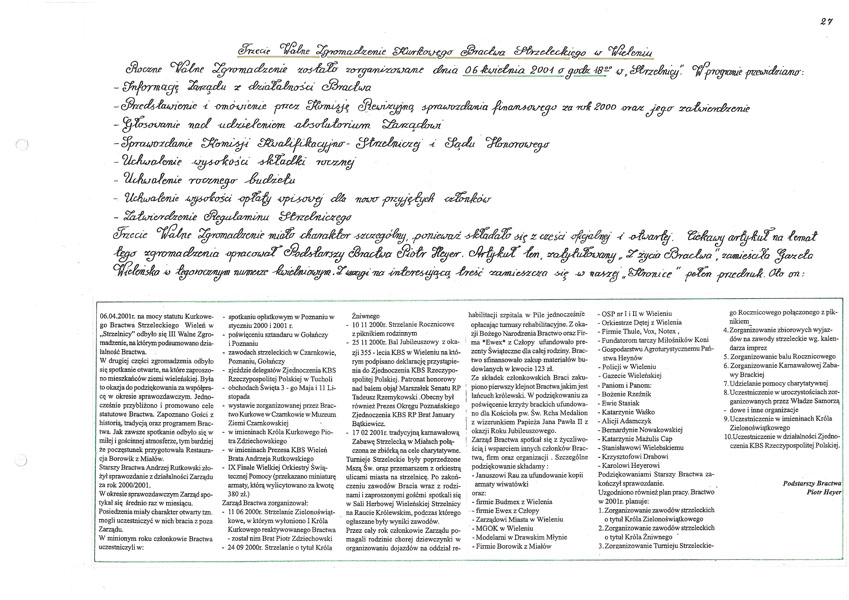 27
Trzecie Walne Zgromadzenie Kurkowego Bractwa Strzeleckiego w Wieleniu
Roczne Walne Zgromadzenie zostało zorganizowane dnia 06 kwietnia 2001 o godz. 18⁰⁰ w „Strzelnicy". W programie przewidziano:
- Informację Zarządu z działalności Bractwa
- Przedstawienie i omówienie przez Komisję Rewizyjną sprawozdania finansowego za rok 2000 oraz jego zatwierdzenie
- Głosowanie nad udzieleniem absolutorium Zarządowi
- Sprawozdanie Komisji Kwalifikacyjno-Strzelniczej i Sądu Honorowego
- Uchwalenie wysokości składki rocznej
- Uchwalenie rocznego budżetu
- Uchwalenie wysokości opłaty wpisowej dla nowo przyjętych członków
- Zatwierdzenie Regulaminu Strzelniczego
Trzecie Walne Zgromadzenie miało charakter szczególny, ponieważ składało się z części oficjalnej i otwartej. Ciekawy artykuł na temat
tego zgromadzenia opracował Podstarszy Bractwa Piotr Heyer. Artykuł ten, zatytułowany „Z życia Bractwa", zamieściła Gazeta
Wieleńska w tegorocznym numerze kwietniowym. Z uwagi na interesującą treść zamieszcza się w naszej „Kronice" pełen przedruk. Oto on:
06.04.2001r. na mocy statutu Kurkowe-
go Bractwa Strzeleckiego Wieleń w
„Strzelnicy" odbyło się III Walne Zgro-
madzenie, na którym podsumowano dzia-
łalność Bractwa.
W drugiej części zgromadzenia odbyło
się spotkanie otwarte, na które zaproszo-
no mieszkańców ziemi wieleńskiej. Była
to okazja do podziękowania za współpra-
cę w okresie sprawozdawczym. Jedno-
cześnie przybliżono i promowano cele
statutowe Bractwa. Zapoznano Gości z
historią, tradycją oraz programem Brac-
twa. Jak zawsze spotkanie odbyło się w
miłej i gościnnej atmosferze, tym bardziej
że poczęstunek przygotowała Restaura-
cja Borowik z Miałów.
Starszy Bractwa Andrzej Rutkowski zło-
żył sprawozdanie z działalności Zarządu
za rok 2000/2001.
W okresie sprawozdawczym Zarząd spo-
tykał się średnio raz w miesiącu.
Posiedzenia miały charakter otwarty tzn.
mogli uczestniczyć w nich bracia z poza
Zarządu.
W minionym roku członkowie Bractwa
uczestniczyli w:
- spotkaniu opłatkowym w Poznaniu w
styczniu 2000 i 2001 r.
- poświęceniu sztandaru w Gołańczy
i Poznaniu
- zawodach strzeleckich w Czarnkowie,
Poznaniu, Gołańczy
- zjeździe delegatów Zjednoczenia KBS
Rzeczypospolitej Polskiej w Tucholi
- obchodach Święta 3 - go Maja i 11 Li-
stopada
- wystawie zorganizowanej przez Brac-
two Kurkowe w Czarnkowie w Muzeum
Ziemi Czarnkowskiej
- w imieninach Króla Kurkowego Pio-
tra Zdziechowskiego
- w imieninach Prezesa KBS Wieleń
Brata Andrzeja Rutkowskiego
- IX Finale Wielkiej Orkiestry Świą-
tecznej Pomocy (przekazano miniaturę
armaty, którą wylicytowano za kwotę
380 zł.)
Zarząd Bractwa zorganizował:
- 11 06 2000r. Strzelanie Zielonoświąt-
kowe, w którym wyłoniono I Króla
Kurkowego reaktywowanego Bractwa
- został nim Brat Piotr Zdziechowski
- 24 09 2000r. Strzelanie o tytuł Króla
Żniwnego
- 10 11 2000r. Strzelanie Rocznicowe
z piknikiem rodzinnym
- 25 11 2000r. Bal Jubileuszowy z oka-
zji 355 - lecia KBS w Wieleniu na któ-
rym podpisano deklarację przystąpie-
nia do Zjednoczenia KBS Rzeczypo-
spolitej Polskiej. Patronat honorowy
nad balem objął Marszałek Senatu RP
Tadeusz Rzemykowski .Obecny był
również Prezes Okręgu Poznańskiego
Zjednoczenia KBS RP Brat January
Bątkiewicz.
- 17 02 2001r. tradycyjną karnawałową
Zabawę Strzelecką w Miałach połą-
czona ze zbiórką na cele charytatywne.
Turnieje Strzeleckie były poprzedzone
Mszą Św. oraz przemarszem z orkiestrą
ulicami miasta na strzelnicę. Po zakoń-
czeniu zawodów Bracia wraz z rodzi-
nami i zaproszonymi gośćmi spotkali się
w Sali Herbowej Wieleńskiej Strzelnicy
na Raucie Królewskim, podczas którego
ogłaszane były wyniki zawodów.
Przez cały rok członkowie Zarządu po-
magali rodzinie chorej dziewczynki w
organizowaniu dojazdów na oddział re-
habilitacji szpitala w Pile jednocześnie
opłacając turnusy rehabilitacyjne. Z oka-
zji Bożego Narodzenia Bractwo oraz Fir-
ma "Ewex" z Człopy ufundowało pre-
zenty Świąteczne dla całej rodziny. Brac-
two sfinansowało zakup materiałów bu-
dowlanych w kwocie 123 zł.
Ze składek członkowskich Braci zaku-
piono pierwszy klejnot Bractwa jakim jest
łańcuch królewski. W podziękowaniu za
poświęcenie krzyży brackich ufundowa-
no dla Kościoła pw. Św. Rcha Medalion
z wizerunkiem Papieża Jana Pawła II z
okazji Roku Jubileuszowego.
Zarząd Bractwa spotkał się z życzliwo-
ścią i wsparciem innych członków Brac-
twa, firm oraz organizacji . Szczególne
podziękowanie składamy :
- Januszowi Rau za ufundowanie kopii
armaty wiwatówki
oraz:
- firmie Budmex z Wielenia
- firmie Ewex z Człopy
- Zarządowi Miasta w Wieleniu
- MGOK w Wieleniu
- Modelarni w Drawskim Młynie
- Firmie Borowik z Miałów
- OSP nr I i II w Wieleniu
- Orkiestrze Dętej z Wielenia
- Firmie Thule, Vox, Notex ,
- Fundatorom tarczy Miłośników Koni
- Gospodarstwu Agroturystycznemu Pań-
stwa Heynów
- Policji w Wieleniu
- Gazecie Wieleńskiej
- Paniom i Panom:
- Bożenie Rzeźnik
- Ewie Stasiak
- Katarzynie Waśko
- Alicji Adamczyk
- Bernardynie Nowakowskiej
- Katarzynie Mażulis Cap
- Stanisławowi Wielebskiemu
- Krzysztofowi Drabowi
- Karolowi Heyerowi
Podziękowaniami Starszy Bractwa za-
kończył sprawozdanie.
Uzgodniono również plan pracy. Bractwo
w 2001r. planuje:
1. Zorganizowanie zawodów strzeleckich
o tytuł Króla Zielonoświątkowego
2. Zorganizowanie zawodów strzeleckich
o tytuł Króla Żniwnego
3. Zorganizowanie Turnieju Strzeleckie-
go Rocznicowego połączonego z pik-
nikiem
4. Zorganizowanie zbiorowych wyjaz-
dów na zawody strzeleckie wg. kalen-
darza imprez
5. Zorganizowanie balu Rocznicowego
6. Zorganizowanie Karnawałowej Zaba-
wy Brackiej
7. Udzielanie pomocy charytatywnej
8. Uczestniczenie w uroczystościach zor-
ganizowanych przez Władze Samorzą
- dowe i inne organizacje
9. Uczestniczenie w imieninach Króla
Zielonoświątkowego
10. Uczestniczenie w działalności Zjedno-
czenia KBS Rzeczypospolitej Polskiej.
Podstarszy Bractwa
Piotr Heyer